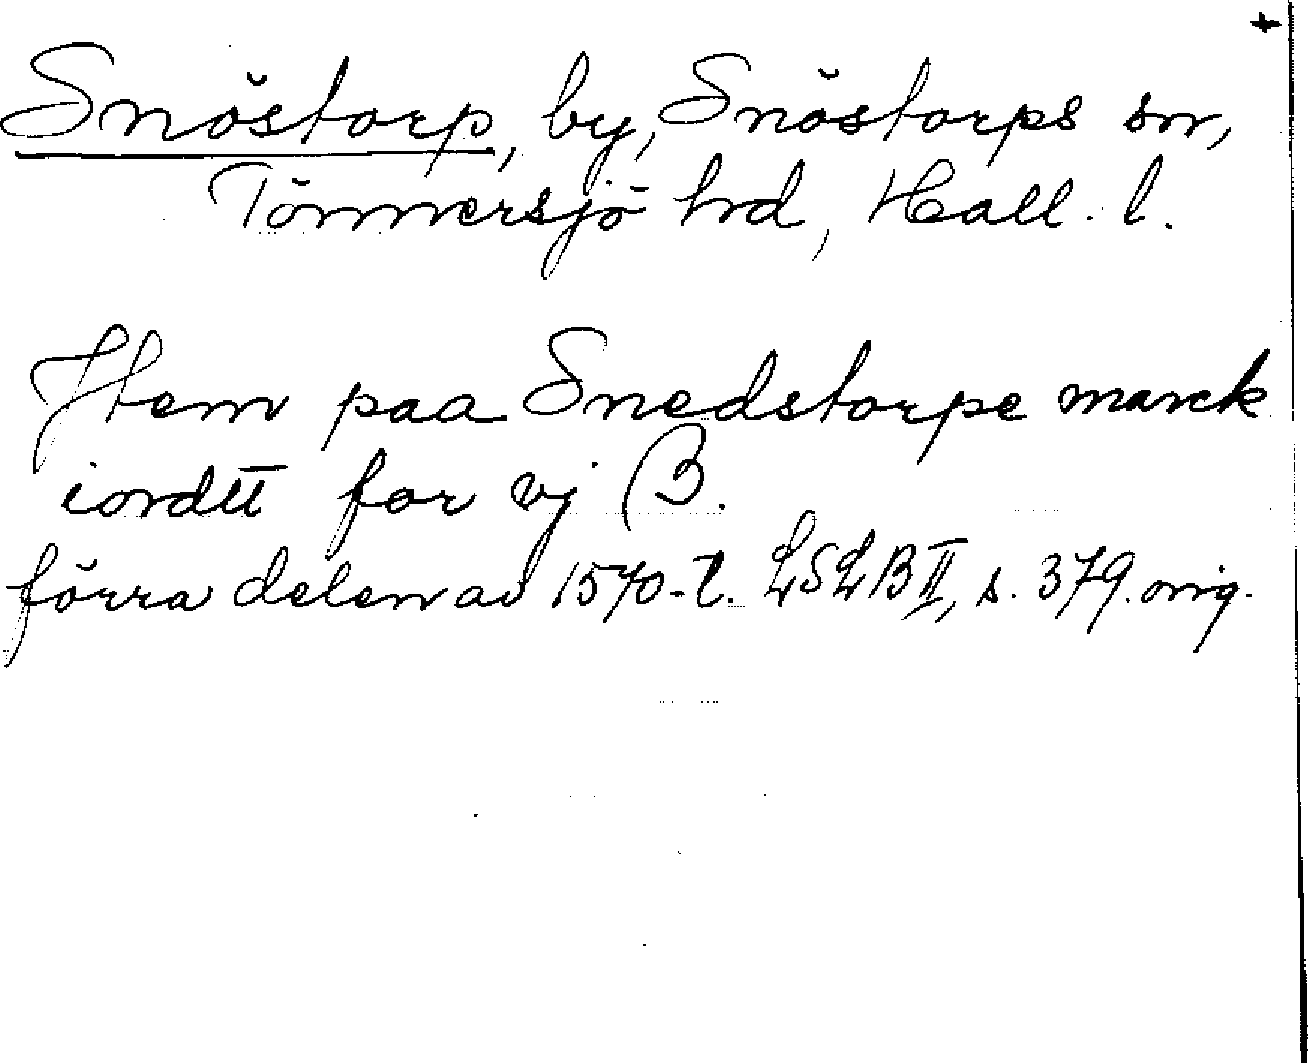 +
Snöstorp, by, Snöstorps sn,
Tönnersjö hd, Hall. l.
Item paa Snedstorpe marck
iordtt for vj β.
förra delen av 1570-t. LSLB II, s. 379. orig.